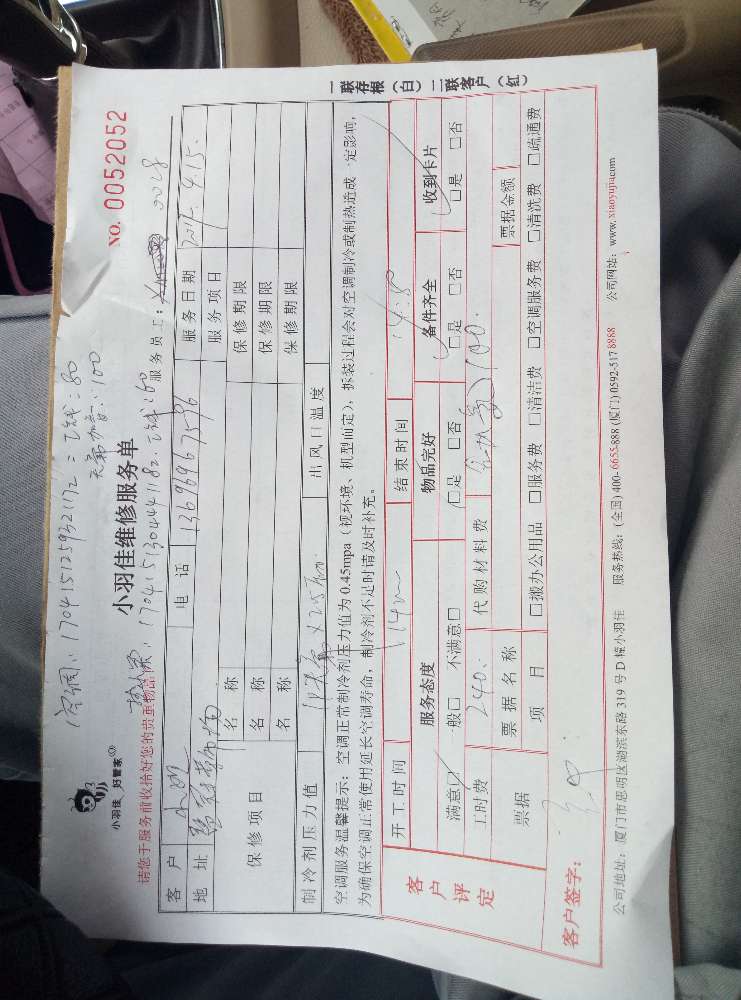 空调：17041512593217 2 = 已钱：80
无氟加雪：100
17041513044411 82. 已钱：60
小羽佳 好管家
小羽佳维修服务单
NO. 0052052
请您于服务前收拾好您的贵重物品
服务员工： 0028
客户 电话 13696967596 服务日期 2017.4.15.
地址 服务项目
保修项目 名称 保修期限
名称 保修期限
名称 保修期限
制冷剂压力值 出风口温度
空调服务温馨提示：空调正常制冷剂压力值为0.45mpa（视环境、机型而定），拆装过程会对空调制冷或制热造成一定影响，
为确保空调正常使用延长空调寿命，制冷剂不足时请及时补充。
客户评定
开工时间 结束时间
服务态度 物品完好 备件齐全 收到卡片
满意□ 一般□ 不满意□ □是 □否 □是 □否 □是 □否
工时费 240. 代购材料费 100.
票据 票据名称 票据金额
项目 □搬办公用品 □服务费 □清洁费 □空调服务费 □清洗费 □疏通费
客户签字：
公司地址：厦门市思明区湖滨东路319号D幢小羽佳 服务热线：(全国)400-6655-888 (厦门)0592-5178888 公司网站：www.xiaoyujia.com
一联存根（白） 二联客户（红）